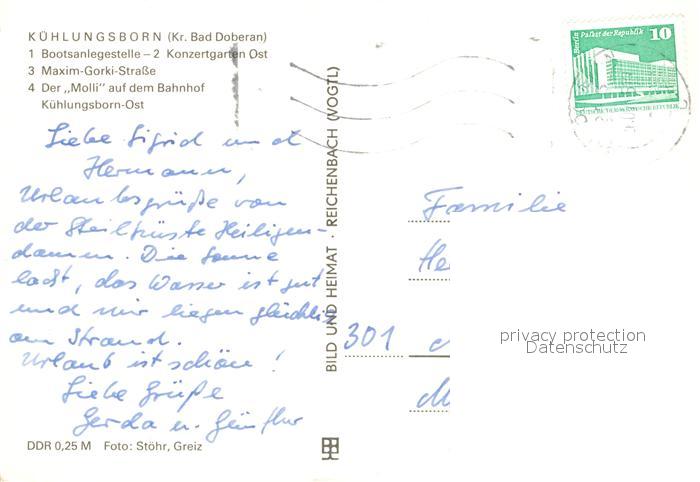 KÜHLUNGSBORN (Kr. Bad Doberan)
1 Bootsanlegestelle – 2 Konzertgarten Ost
3 Maxim-Gorki-Straße
4 Der „Molli" auf dem Bahnhof
Kühlungsborn-Ost
Liebe Sigrid und
Hermann,
Urlaubsgrüße von
der Steilküste Heiligen-
damm. Die Sonne
lacht, das Wasser ist gut
und wir liegen glücklich
am Strand.
Urlaub ist schön!
Liebe Grüße
Gerda u. Günther
DDR 0,25 M Foto: Stöhr, Greiz
BILD UND HEIMAT · REICHENBACH (VOGTL)
Berlin Palast der Republik
10
DEUTSCHE DEMOKRATISCHE REPUBLIK
Familie
He
301
M
privacy protection
Datenschutz